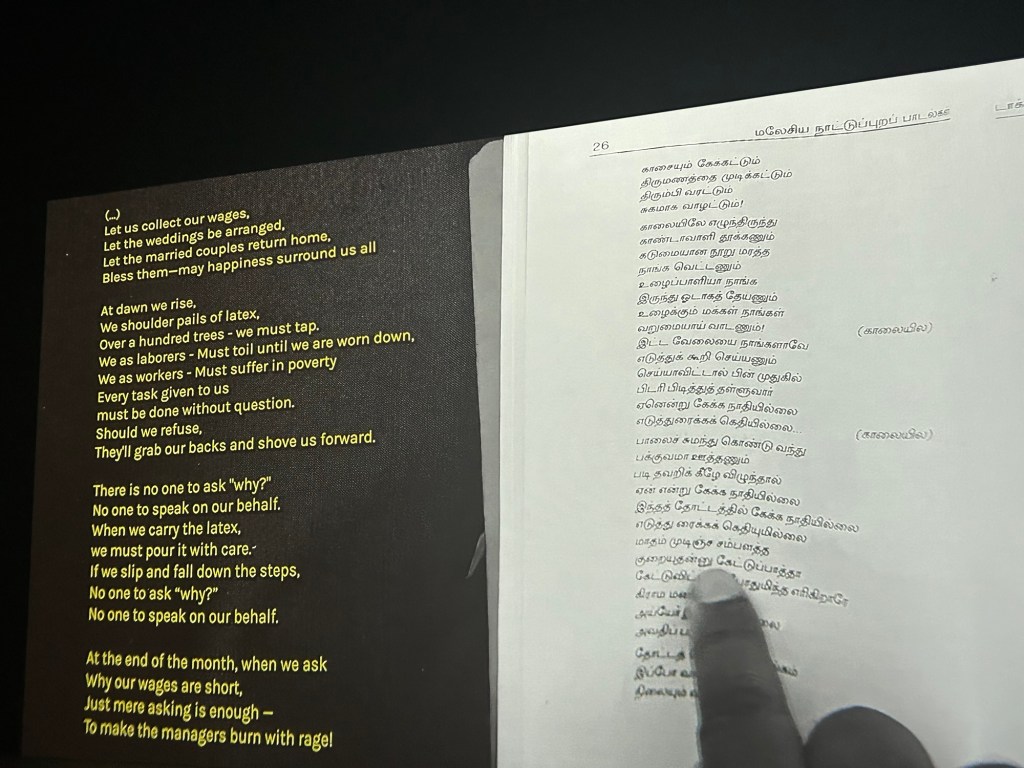 (...)
Let us collect our wages,
Let the weddings be arranged,
Let the married couples return home,
Bless them—may happiness surround us all
At dawn we rise,
We shoulder pails of latex,
Over a hundred trees - we must tap.
We as laborers - Must toil until we are worn down,
We as workers - Must suffer in poverty
Every task given to us
must be done without question.
Should we refuse,
They'll grab our backs and shove us forward.
There is no one to ask "why?"
No one to speak on our behalf.
When we carry the latex,
we must pour it with care.-
If we slip and fall down the steps,
No one to ask “why?”
No one to speak on our behalf.
At the end of the month, when we ask
Why our wages are short,
Just mere asking is enough —
To make the managers burn with rage!
26 மலேசிய நாட்டுப்புறப் பாடல்கள்
டாக்
காசையும் கேககட்டும்
திருமணத்தை முடிக்கட்டும்
திரும்பி வரட்டும்
சுகமாக வாழட்டும்!
காலையிலே எழுந்திருந்து
காண்டாவாளி தூக்கணும்
கடுமையான நூறு மரத்த
நாங்க வெட்டணும்
உழைப்பாளியா நாங்க
இருந்து ஓடாகத் தேயணும்
உழைக்கும் மக்கள் நாங்கள்
வறுமையாய் வாடணும்! (காலையில)
இட்ட வேலையை நாங்களாவே
எடுத்துக் கூறி செய்யணும்
செய்யாவிட்டால் பின் முதுகில்
பிடரி பிடித்துத் தள்ளுவார்
ஏனென்று கேக்க நாதியில்லை
எடுத்துரைக்கக் கெதியில்லை... (காலையில)
பாலைச் சுமந்து கொண்டு வந்து
பக்குவமா ஊத்தணும்
படி தவறிக் கீழே விழுந்தால்
ஏன் என்று கேக்க நாதியில்லை
இந்தத் தோட்டத்தில் கேக்க நாதியில்லை
எடுத்து ரைக்கக் கெதியுமில்லை
மாதம் முடிஞ்ச சம்பளத்த
குறையுதன்னு கேட்டுப்பாத்தா
எரிகிறாரே
கிராம
தோட்டத்
இப்போ
நிலையும்